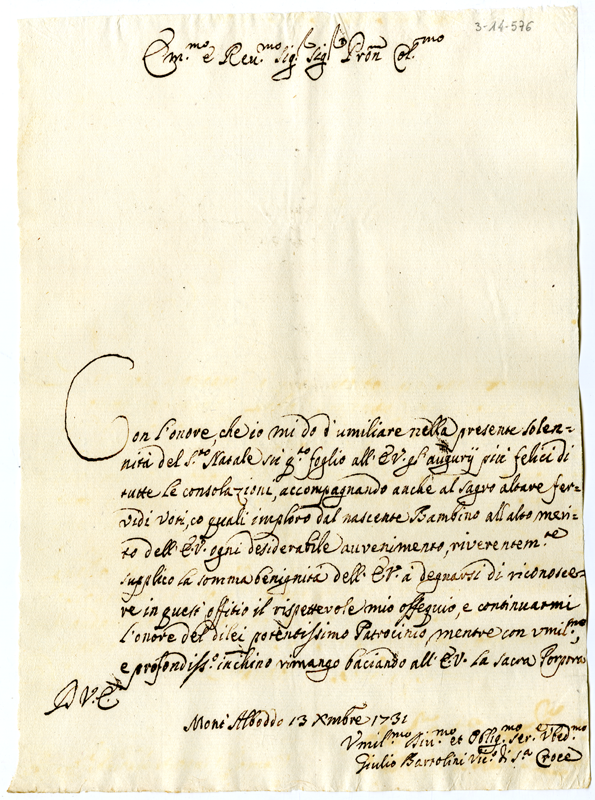 3-14-576
Em.mo e Reu.mo Sig.r Sig.r Pron Col.mo
Con l'onore, che io mi do d'umiliare nella presente solen=
nità del S.to Natale sù q.to foglio all'E.V. gl'augurij più felici di
tutte le consolazioni, accompagnando anche al sagro altare fer=
vidi voti, co quali imploro dal nascente Bambino all'alto meri=
to dell'E.V. ogni desiderabile auvenimento, riverentem.te
supplico la somma benignità dell'E.V. a degnarsi di riconosce=
re in quest'offitio il rispettevole mio ossequio, e continuarmi
l'onore del dilei potentissimo Patrocinio, mentre con umil.mo
e profondiss.o inchino rimango baciando all'E.V. la sacra Porpora
D.V.E.
Mont'Alboddo 13 Xmbre 1731
Vmil.mo Diu.mo et Oblig.mo Ser.e Vbed.mo
Giulio Bartolini Vic.o di S.a Croce